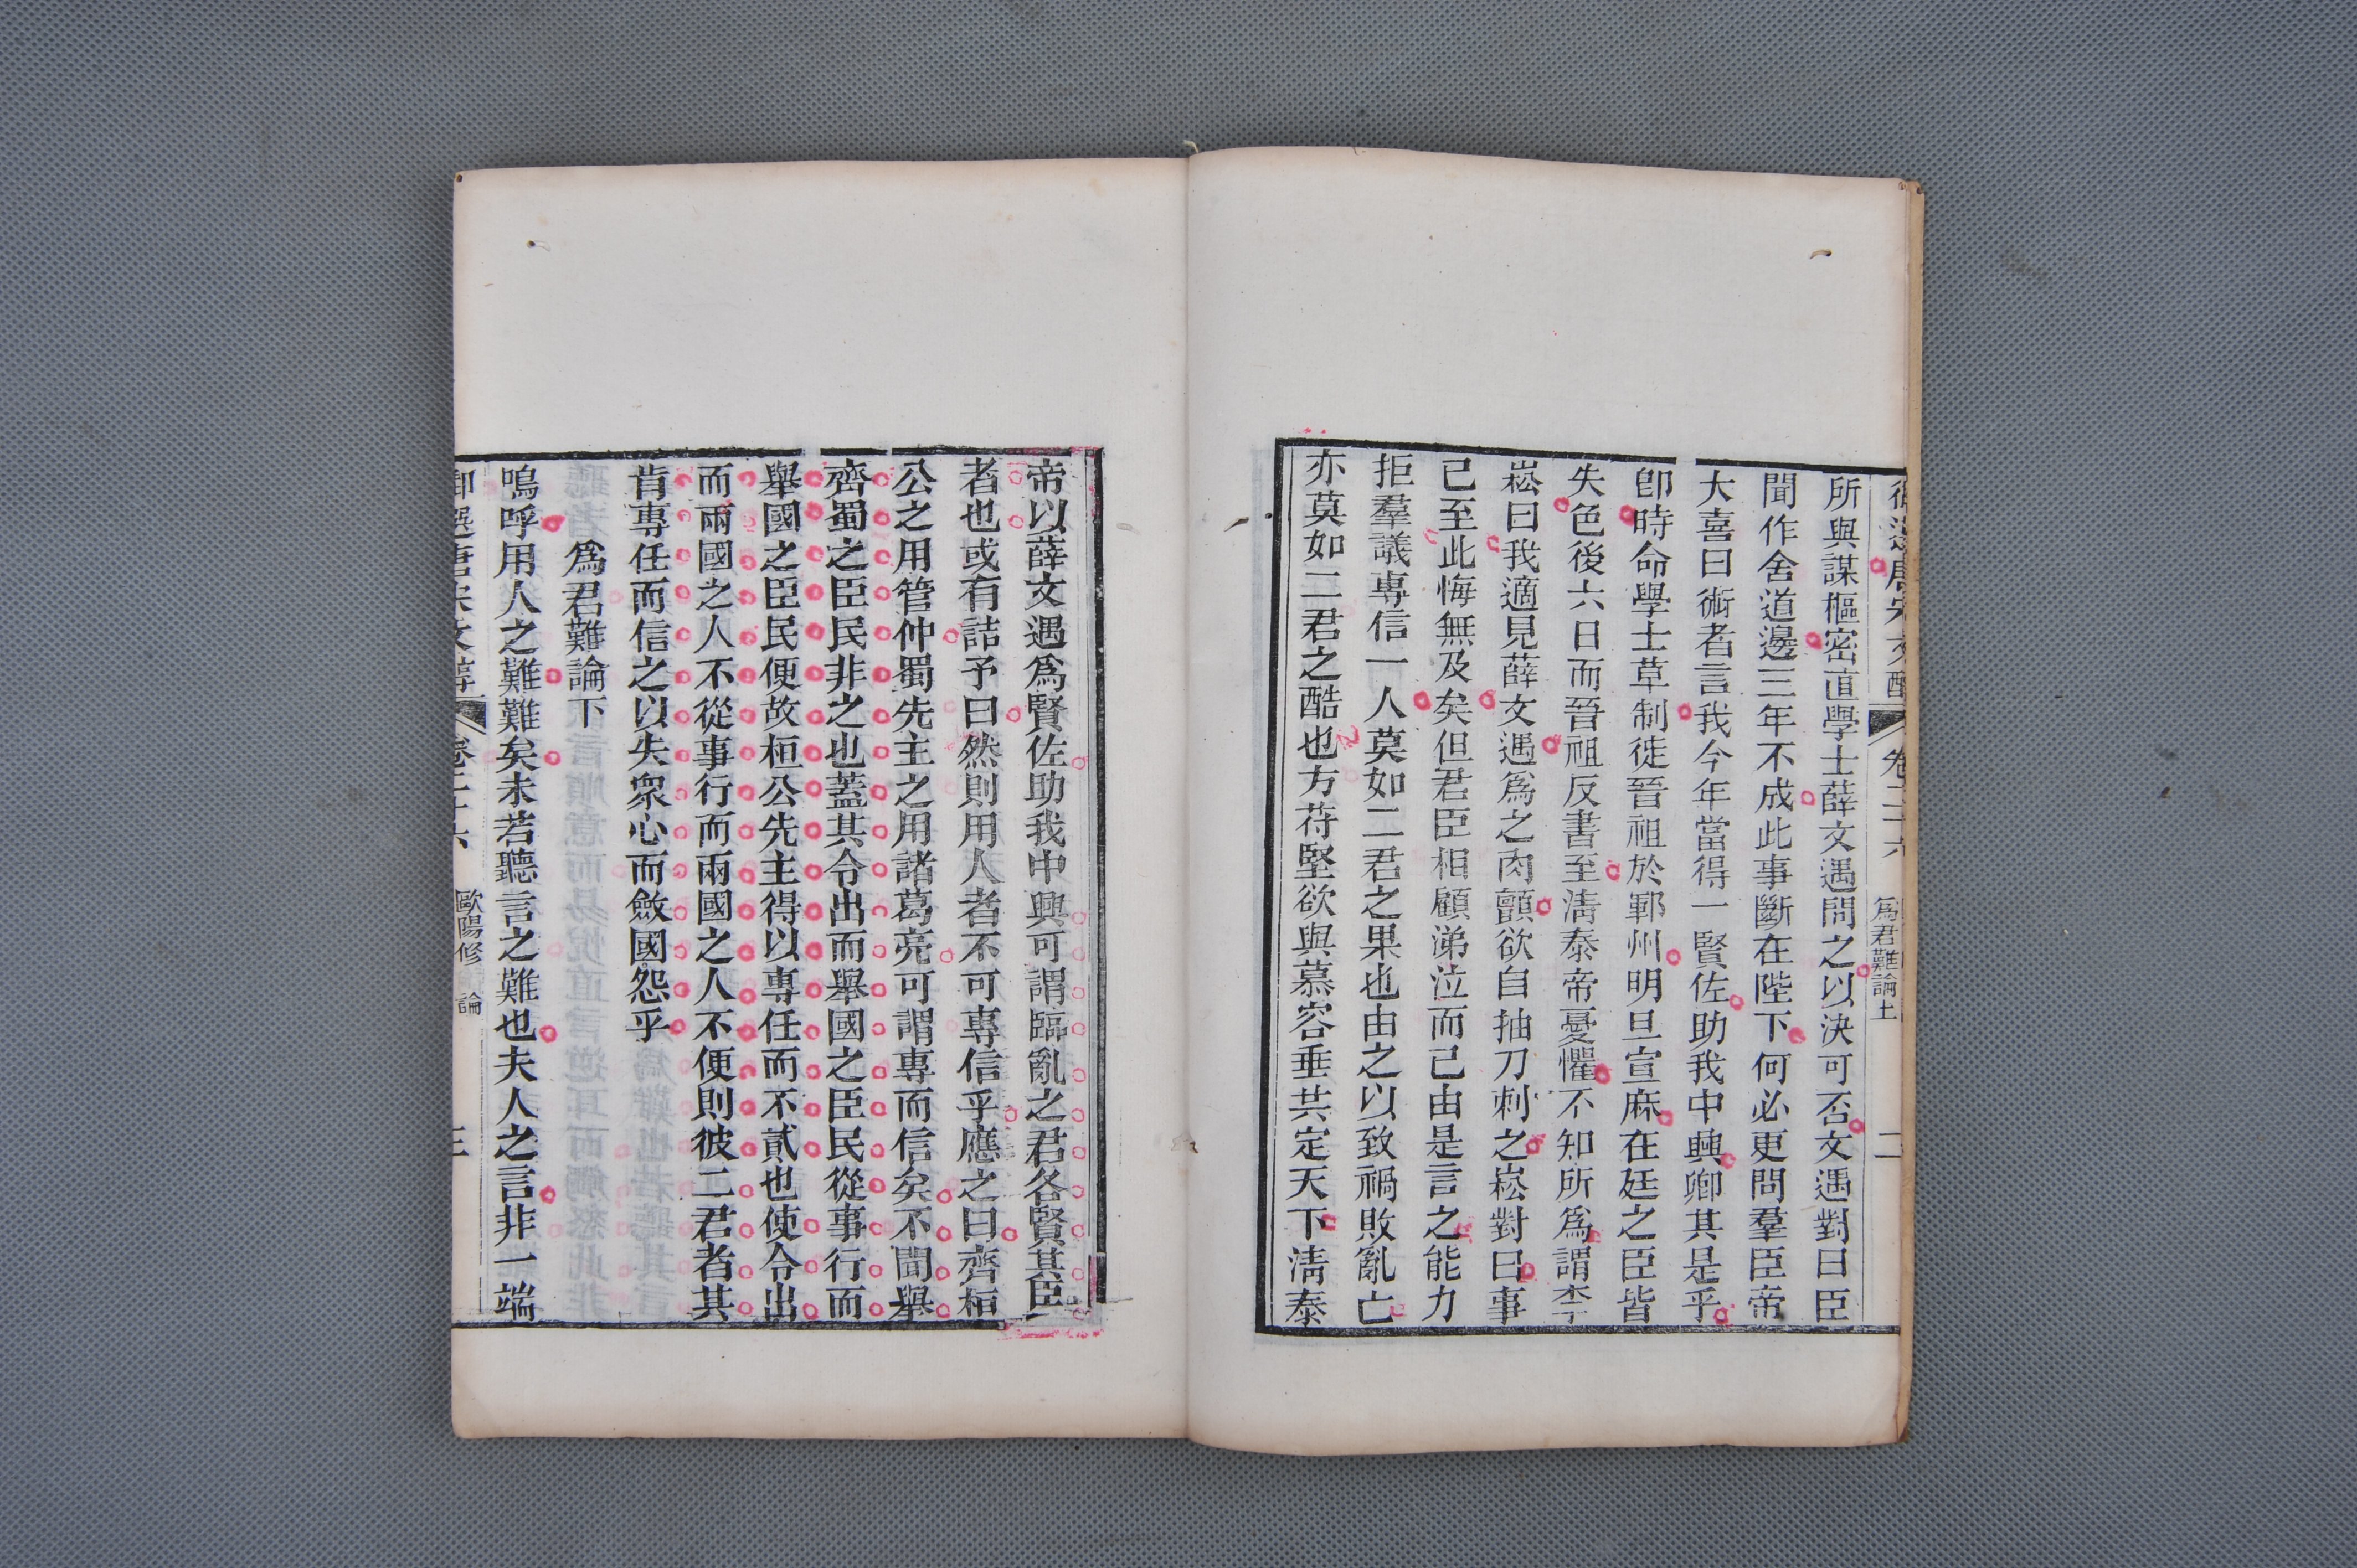 御選唐宋文醇 卷二十六 爲君難論上 二
所與謀樞密直學士薛文遇問之以決可否文遇對曰臣
聞作舍道邊三年不成此事斷在陛下何必更問羣臣帝
大喜曰術者言我今年當得一賢佐助我中興卿其是乎
卽時命學士草制徙晉祖於鄆州明旦宣麻在廷之臣皆
失色後六日而晉祖反書至淸泰帝憂懼不知所爲謂李
崧曰我適見薛文遇爲之肉顫欲自抽刀刺之崧對曰事
已至此悔無及矣但君臣相顧涕泣而已由是言之能力
拒羣議專信一人莫如二君之果也由之以致禍敗亂亡
亦莫如二君之酷也方苻堅欲與慕容垂共定天下淸泰
帝以薛文遇爲賢佐助我中興可謂臨亂之君各賢其臣
者也或有詰予曰然則用人者不可專信乎應之曰齊桓
公之用管仲蜀先主之用諸葛亮可謂專而信矣不聞舉
齊蜀之臣民非之也蓋其令出而舉國之臣民從事行而
舉國之臣民便故桓公先主得以專任而不貳也使令出
而兩國之人不從事行而兩國之人不便則彼二君者其
肯專任而信之以失衆心而斂國怨乎
爲君難論下
嗚呼用人之難難矣未若聽言之難也夫人之言非一端
御選唐宋文醇 卷二十六 歐陽修 論 三